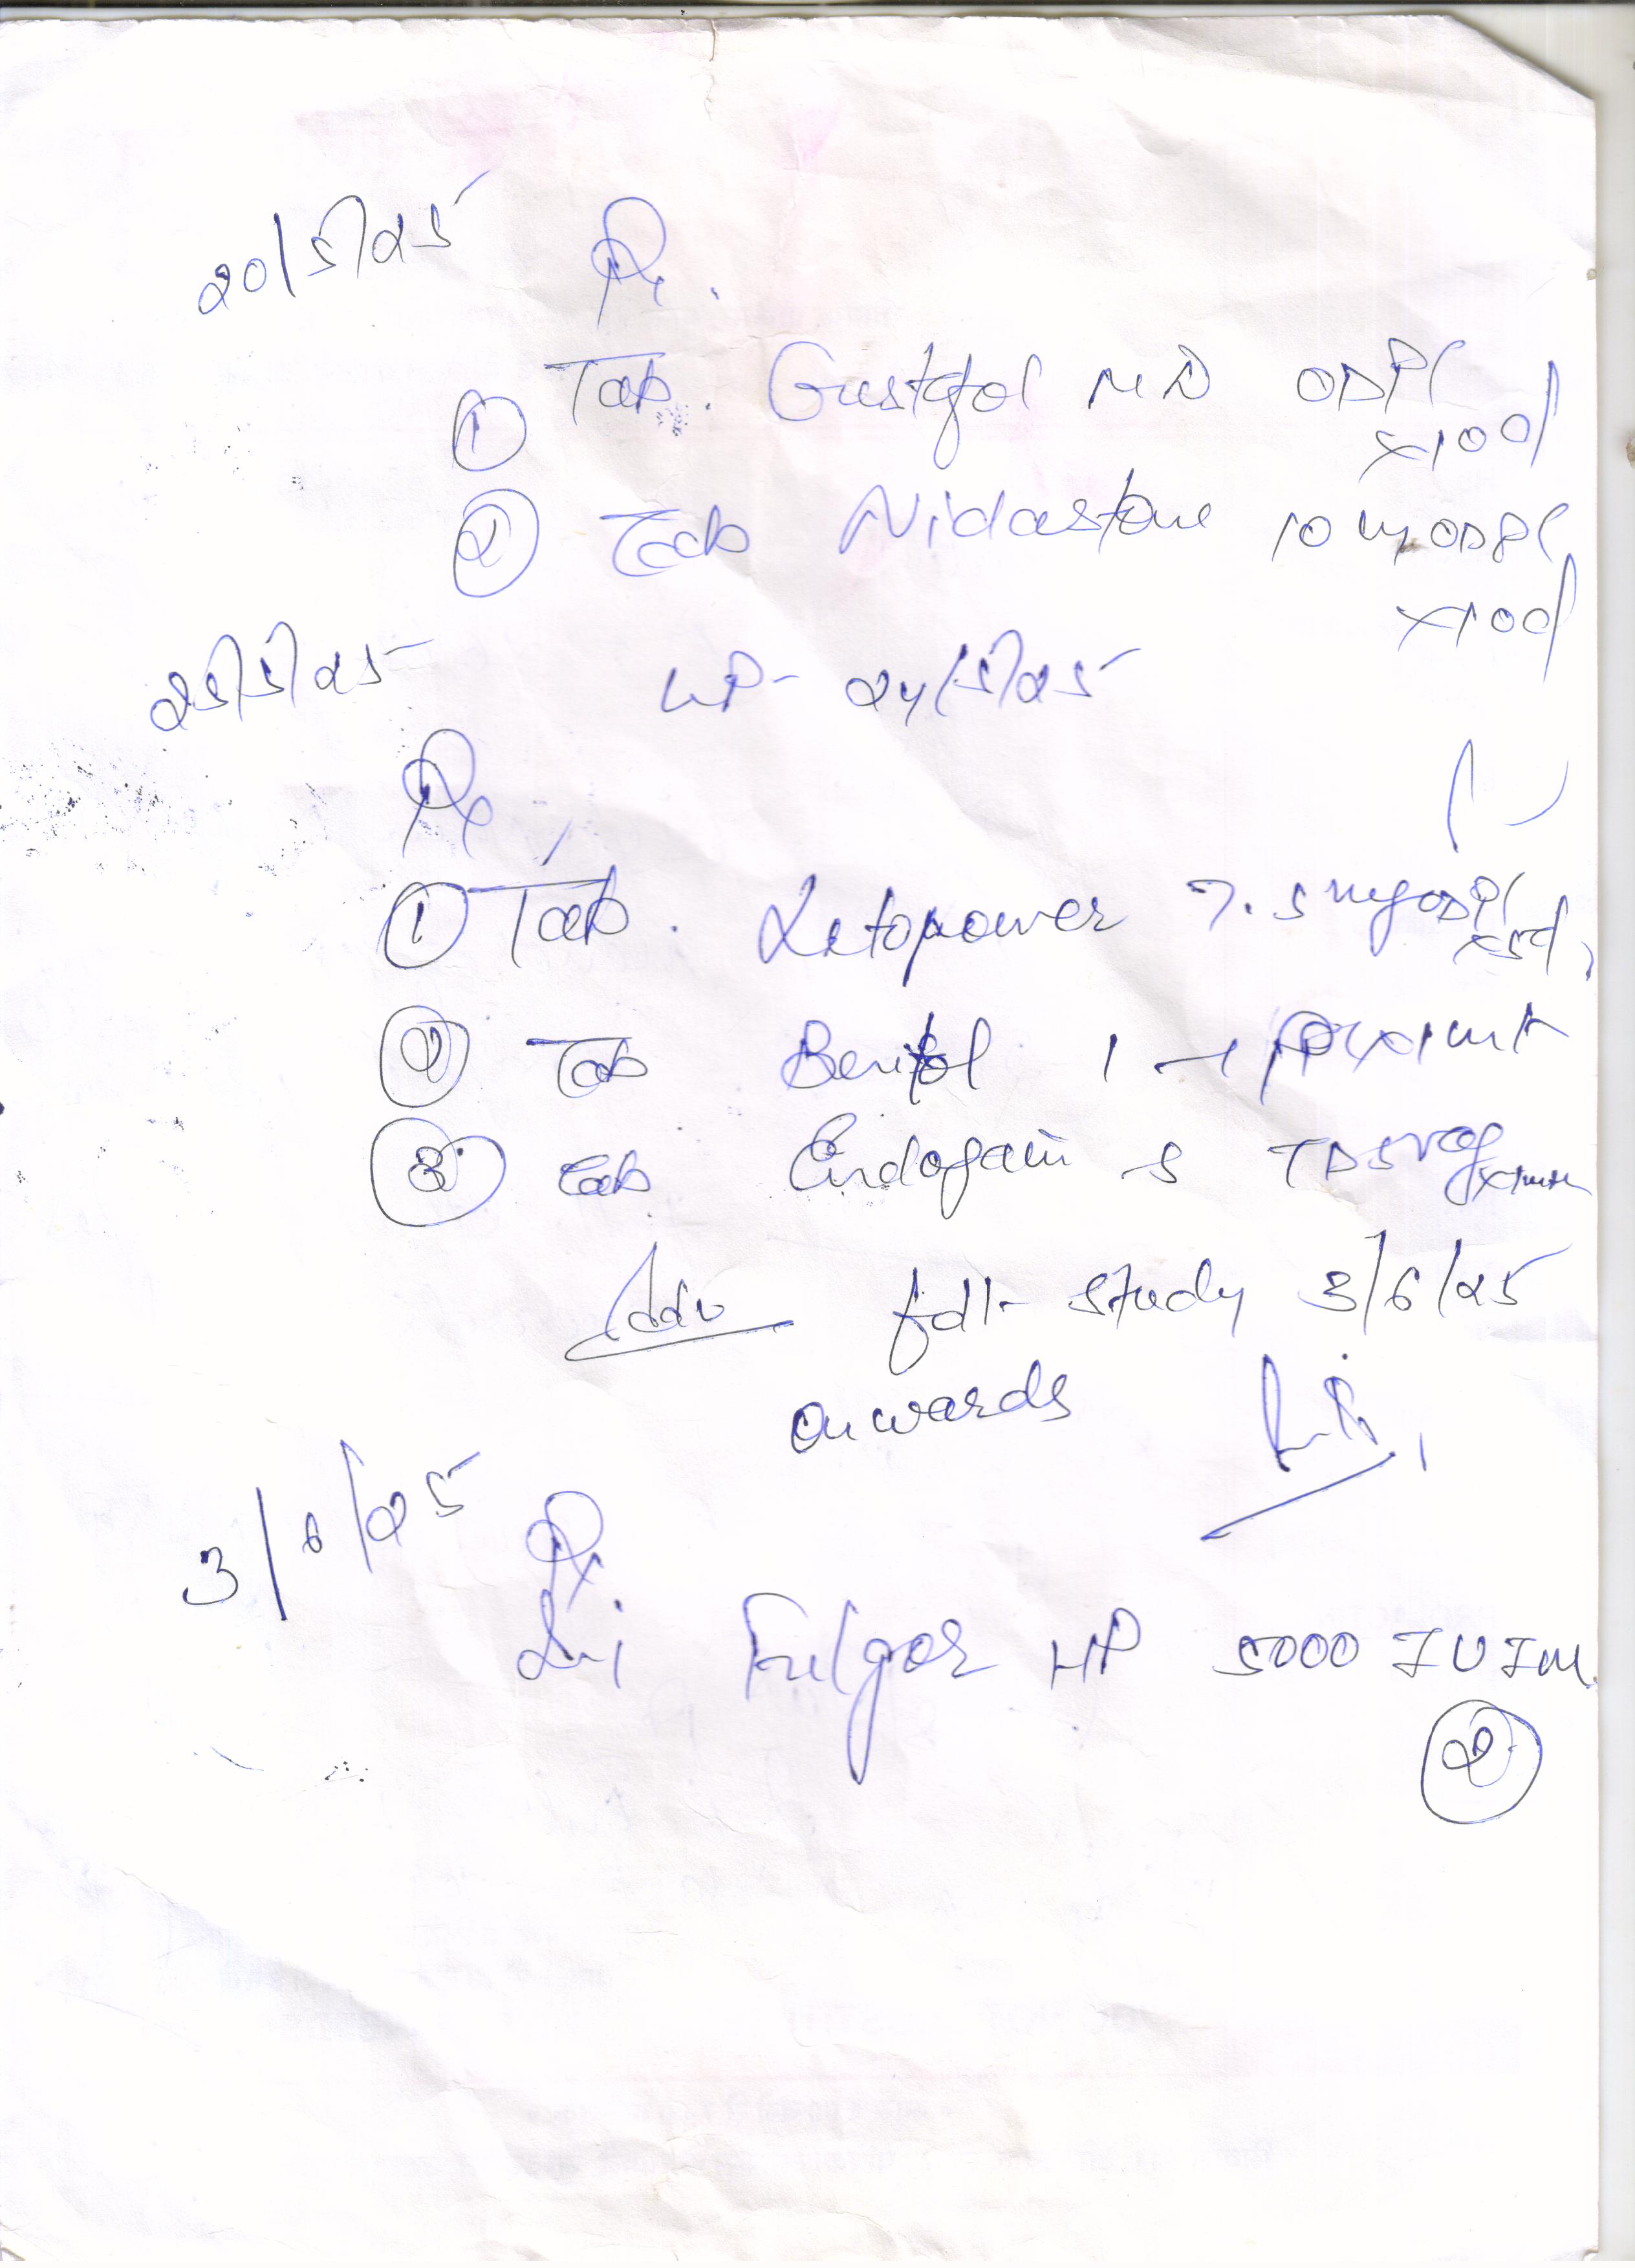 20/5/25 Rx.
① Tab. Gustofol MD OD PC
x10d
② Tab Nidastone 10 mg OD PC
x10d
25/5/25 LMP- 24/5/25
Rx
① Tab. Letopower 7.5mg OD PC
x5d
② Tab 1 x1mth
③ Tab Endogain S TDS vag x1mth
Adv foll- study 3/6/25
onwards
3/6/25 Rx
Inj Fulgor HP 5000 IU IM
②